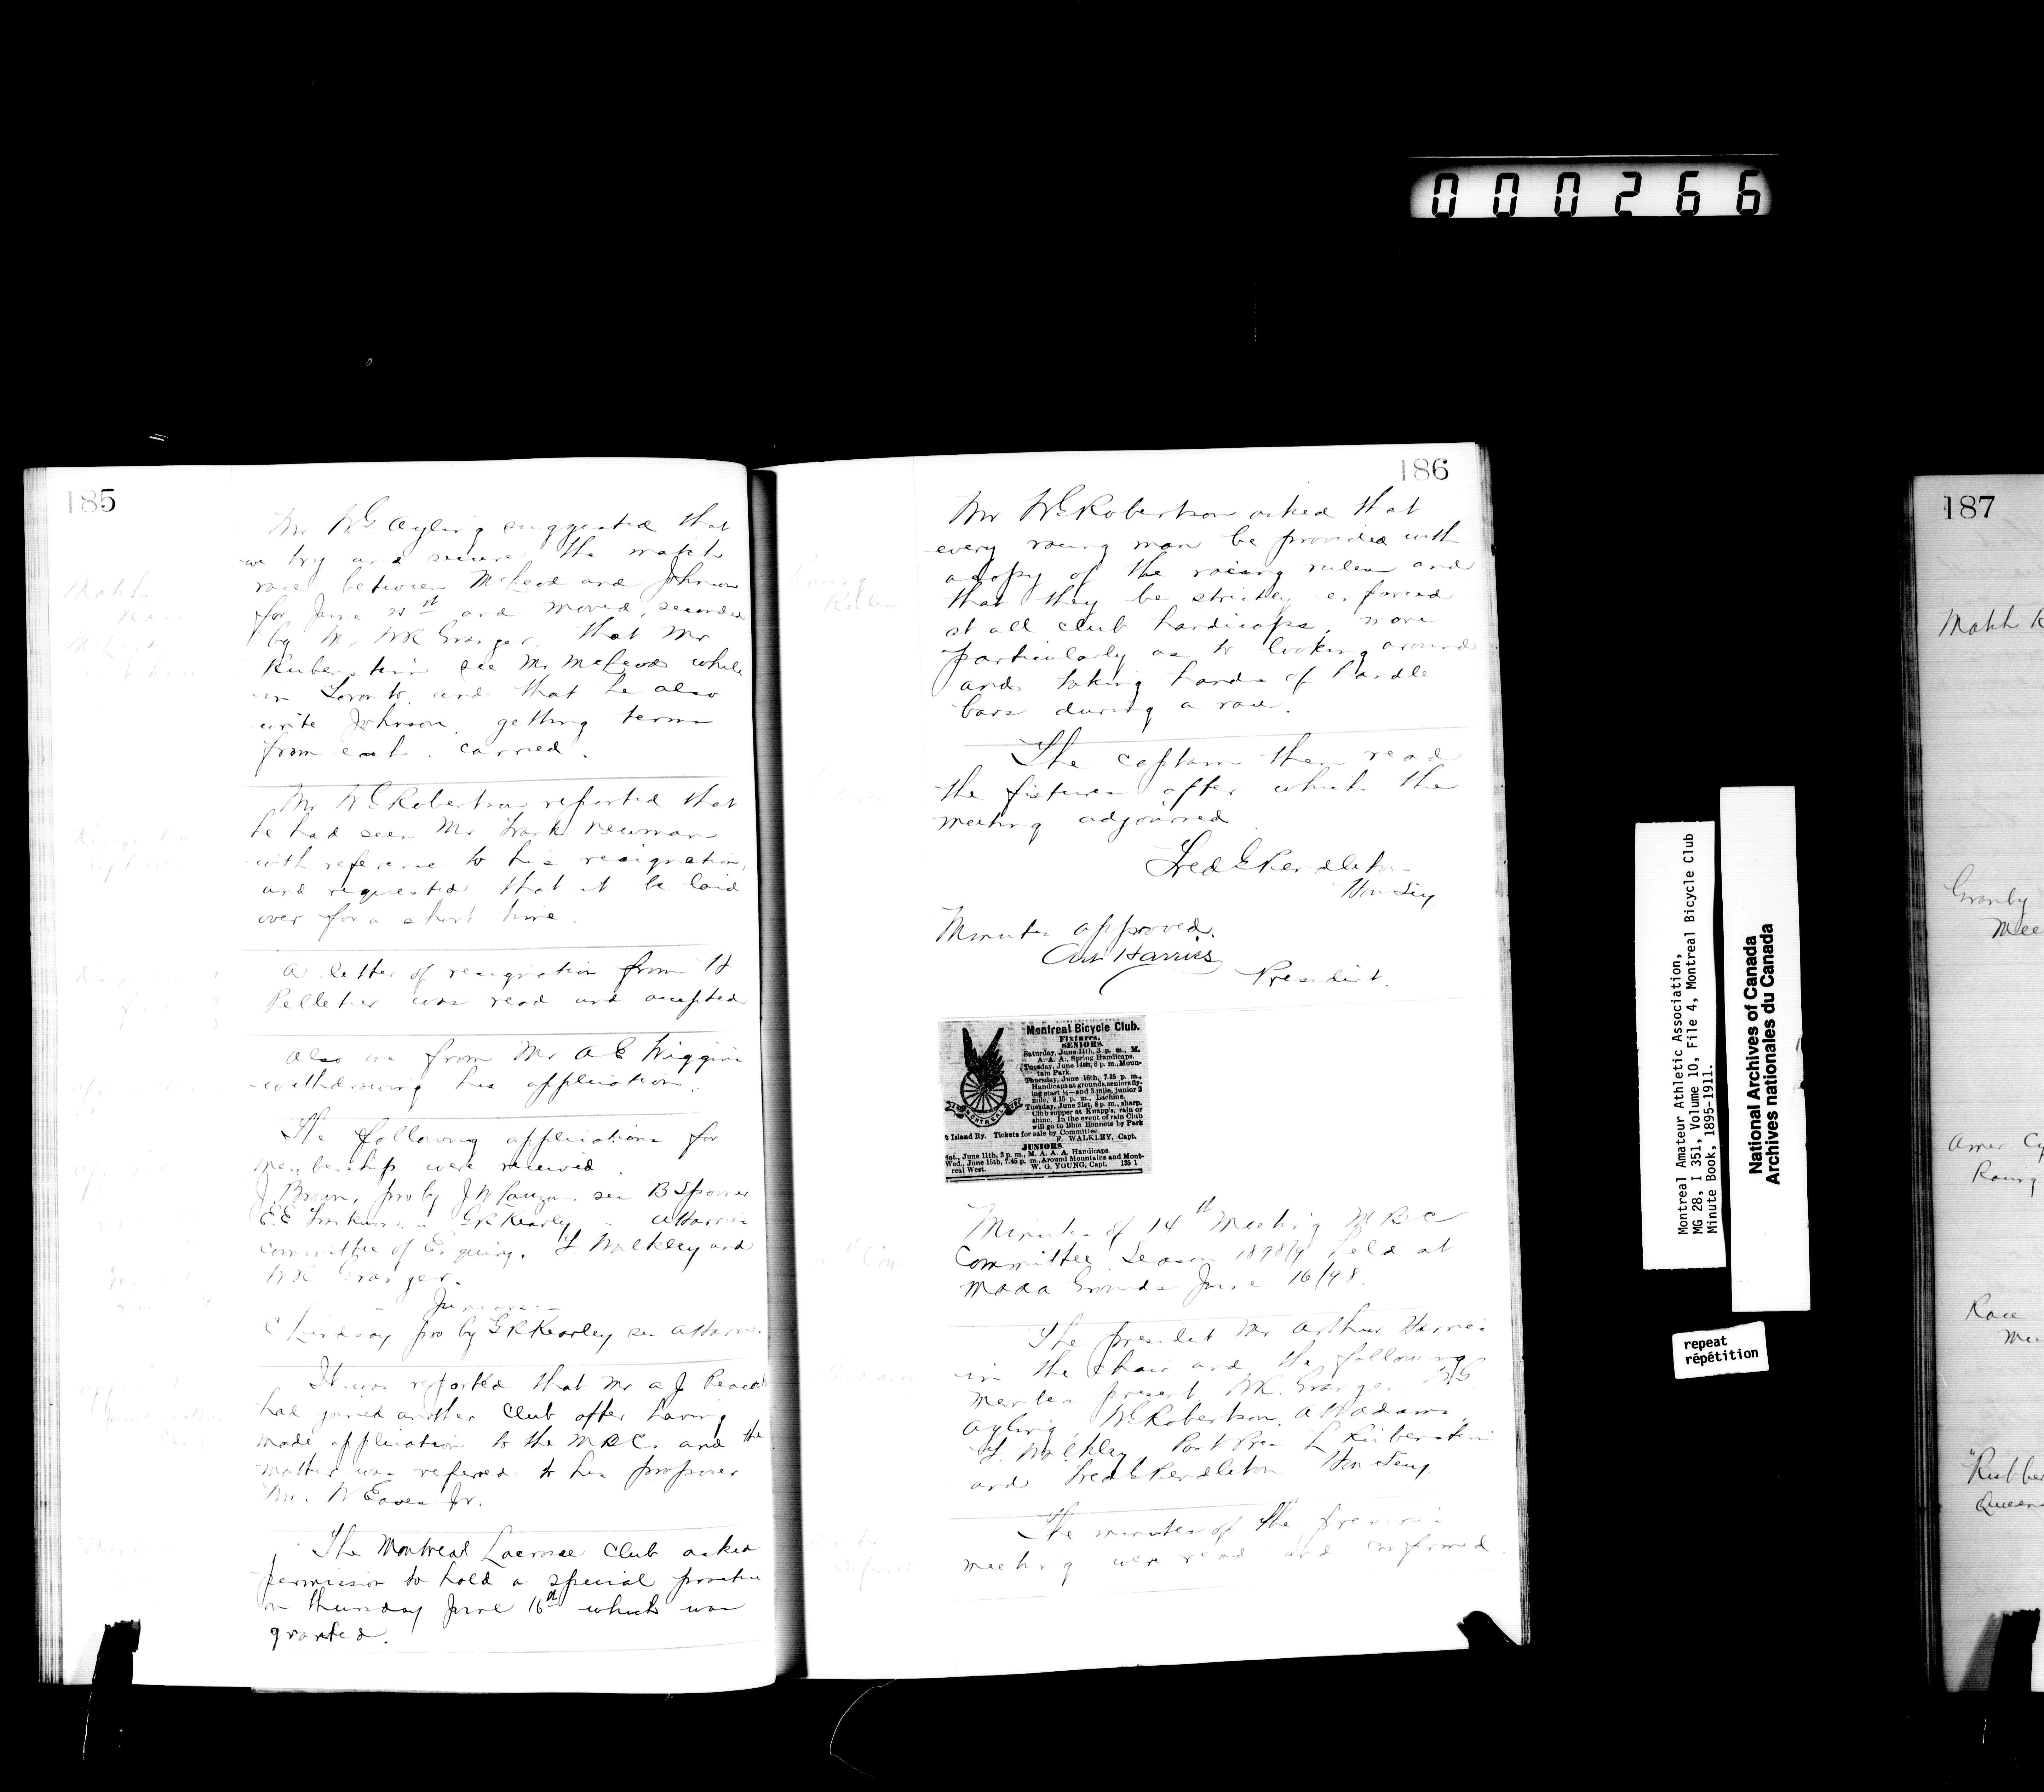 000266
185
Mr W G Ayling suggested that
we try and secure the match
race between McLeod and Johnson
for June 25th and moved, seconded
by Mr WR Granger, that Mr
Rubenstein see Mr McLeod while
in Toronto, and that he also
write Johnson, getting terms
from each. carried.
Match
Race
Mr W G Robertson reported that
he had seen Mr Frank Newman
with reference to his resignation,
and requested that it be laid
over for a short time.
A letter of resignation from H
Pelletier was read and accepted
Also one from Mr A E Wiggins
withdrawing his application.
The following applications for
membership were received.
J. Brown, pro by J W sec B Spooner
E.E. " G R Kearley " A Harries
Committee of Enquiry, F Walkley and
WR Granger.
Juniors
C Lindsay pro by G R Kearley sec A Harries
It was reported that Mr A J
had joined another Club after having
made application to the MBC. and the
matter was referred to his proposer
Mr. W Eaves Jr.
The Montreal Lacrosse Club asked
permission to hold a special practice
on Thursday June 16th which was
granted.
186
Racing
Rules
Mr W G Robertson asked that
every racing man be provided with
a copy of the racing rules and
that they be strictly enforced
at all club handicaps, more
particularly as to looking around
and taking hands of handle
bars during a race.
The captain then read
the fixtures after which the
meeting adjourned
Fred G Pendleton
Hon Secy
Minutes approved.
Art Harries
President.
Montreal Bicycle Club.
Fixtures.
SENIORS.
Saturday, June 11th, 3 p. m., M.
A. A. A., Spring Handicaps.
Tuesday, June 14th, 8 p. m., Moun-
tain Park.
Thursday, June 16th, 7.15 p. m.,
Handicaps at grounds, seniors fly-
ing start ¼—and 3 mile, junior 2
mile, 8.15 p. m., Lachine.
Tuesday, June 21st, 8 p. m., sharp,
Club supper at Knapp's, rain or
shine. In the event of rain Club
will go to Blue Bonnets by Park
& Island Ry. Tickets for sale by Committee.
F. WALKLEY, Capt.
JUNIORS
Sat., June 11th, 3 p. m., M. A. A. A. Handicaps.
Wed., June 15th, 7.45 p. m., Around Mountains and Mont-
real West.
W. G. YOUNG, Capt. 135 1
Minutes of 14th Meeting MBC
Committee Season 1898/9 held at
MAAA Grounds June 16/98.
The president Mr Arthur Harries
in the chair and the following
members present WR. Granger. W.G
Ayling, W G Robertson, A W Adams,
F. Walkley, Past Pres L Rubenstein
and Fred G Pendleton Hon Secy.
The minutes of the previous
meeting were read and confirmed.
Montreal Amateur Athletic Association,
MG 28, I 351, Volume 10, File 4, Montreal Bicycle Club
Minute Book, 1895-1911.
National Archives of Canada
Archives nationales du Canada
repeat
répétition
187
Match R
Granby
Mee
Amer Cy
Racing
Race
Mee
"Rubber
Queen